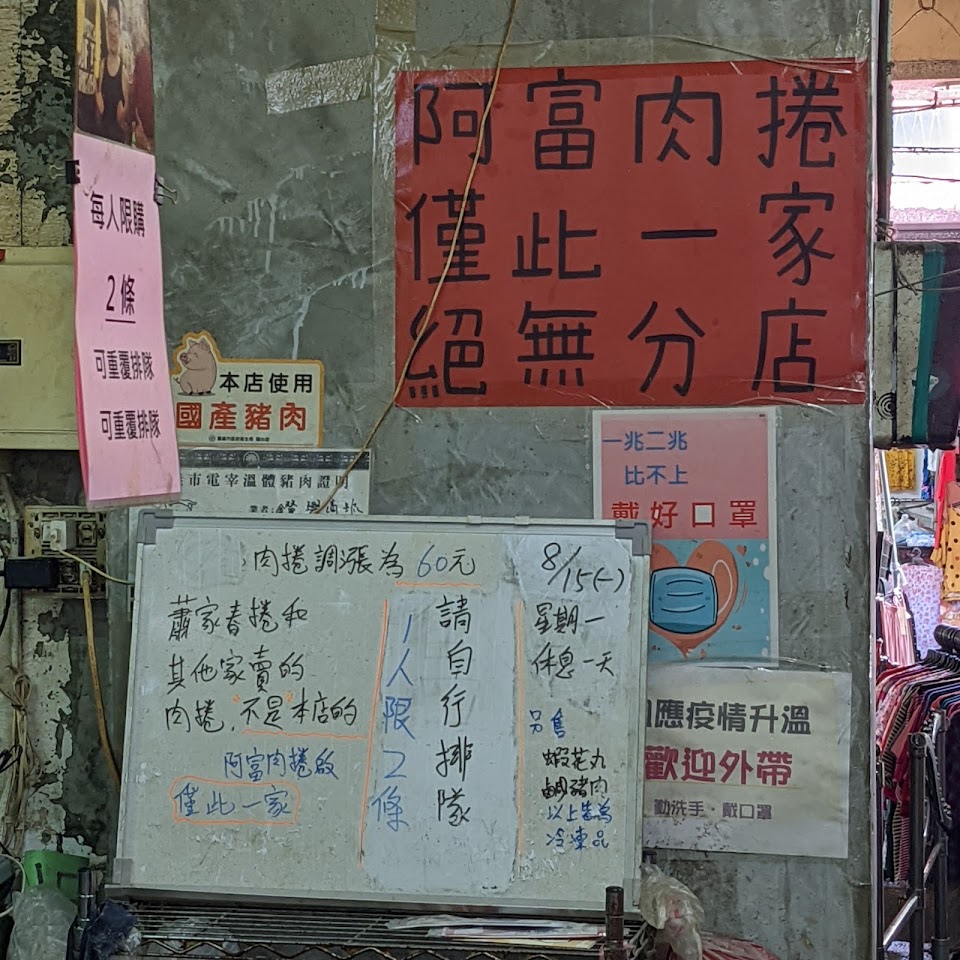 阿富肉捲
僅此一家
絕無分店
每人限購
2條
可重覆排隊
可重覆排隊
本店使用
國產豬肉
市電宰溫體豬肉證明
業者:
一兆二兆
比不上
戴好口罩
肉捲調漲為60元
蕭家春捲和
其他家賣的
肉捲,不是本店的
阿富肉捲啟
僅此一家
1人限2條
請自行排隊
8/15(一)
星期一
休息一天
另售
蝦花丸
鹹豬肉
以上皆為
冷凍品
因應疫情升溫
歡迎外帶
勤洗手·戴口罩